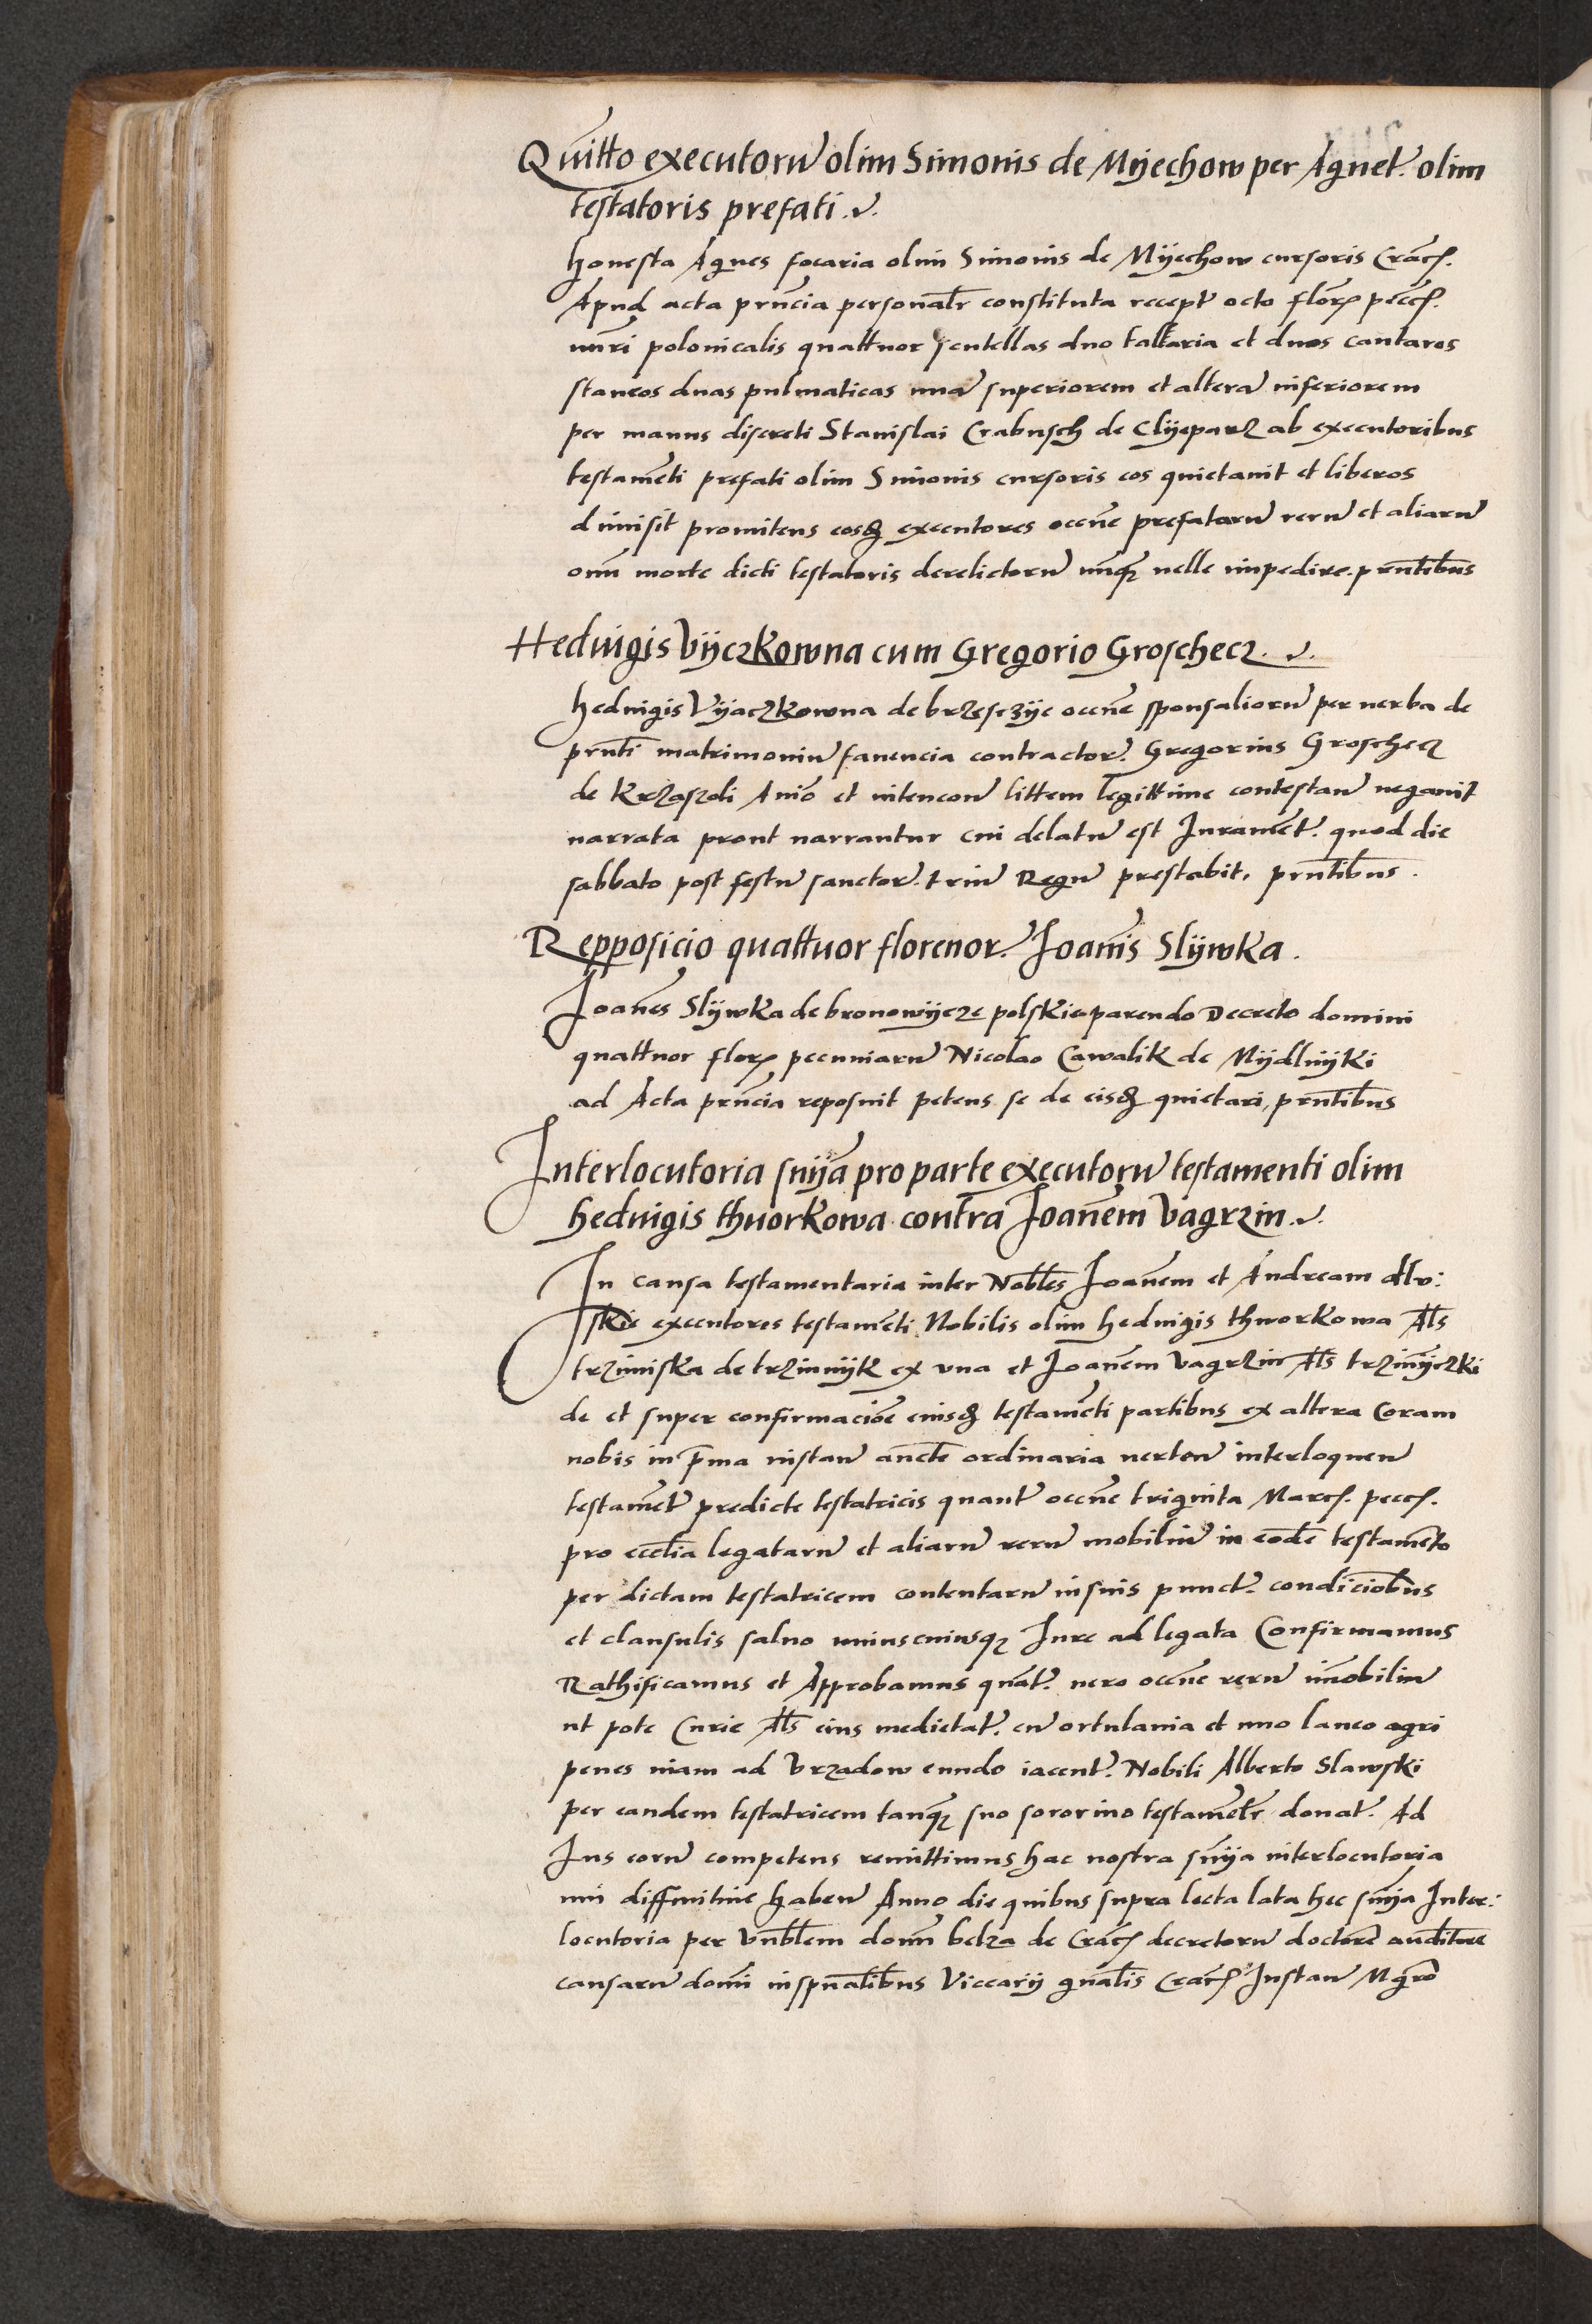 Quitto executorum olim Simonis de Myechow per Agnet. olim
testatoris prefati .v.
honesta Agnes focaria olim Simonis de Myechow cursoris Crac.
Apud acta pñcia personalr constituta recept octo flor pecc.
nuri polonicalis quattuor scutellas duo tallaria et duos cantaros
staneos duas pulmaticas unã superiorem et alterã inferiorem
per manus discreti Stanislai Crabusch de Clyeparz ab executoribus
testamẽti prefati olim Simonis cursoris eos quietavit et liberos
dimisit promitens eosq executores occñe prefatarũ rerũ et aliarũ
oim morte dicti testatoris derelictorũ unq velle impedire. pñtibus
Hedvigis Vyczkowna cum Gregorio Groschecz. .v.
hedvigis Vyaczkowna de brzesczye occñe sponsaliorũ per verba de
pñti matrimoniũ favencia contractor. Gregorius Groschecz
de Krzaszoli Anió et intencoñ littem legittime contestañ negavit
narrata prout narrantur cui delatũ est Juramẽt. quod die
sabbato post festũ sanctor. triũ Regũ prestabit, pñtibus.
Repposicio quattuor florenor. Joanis Slywka.
Joanes Slywka de bronowycze polskie parendo Decreto domini
quattuor flor pecuniarũ Nicolao Cawalik de Mydlnyki
ad Acta pñcia reposuit petens se de eisq quietari, pñtibus
Interlocutoria snÿa pro parte executorũ testamenti olim
hedvigis thvorkowa contra Joanem Vagrzin .v.
In causa testamentaria inter Nobles Joanem et Andream dlv:
skie executores testamẽti Nobilis olim hedvigis thworkowa Als
trziniska de trzinnyk ex una et Joanem Vagrzin Als trzinyczki
de et super confirmacióe eiusq testamẽti partibus ex altera Coram
nobis in pma instañ aucte ordinaria verteñ interloqueñ
testamẽt predicte testatricis quant occñe triginta Marc. pecc.
pro ecclia legatarũ et aliarũ rerũ mobiliũ in eode testamẽto
per dictam testatricem contentarũ in suis punct. condiciobus
et clausulis salvo uniuscuiusq Jure ad legata Confirmamus
Rathificamus et Approbamus quat. vero occñe rerũ imobiliũ
ut pote Curie Als eius medietat. cũ ortulania et uno laneo agri
penes viam ad Vrzadow eundo iacent. Nobili Alberto Slawski
per eandem testatricem tanq suo sororino testametlr donat. Ad
Jus eorũ competens remittimus hac nostra snÿa interlocutoria
vim diffinitive habeñ Anno die quibus supra lecta lata hec snia Inter:
locutoria per Vnblem domi belza de Crac decretorũ doctore auditore
causarũ domi in spualibus Viccarij gnalis Crac Instañ Mgro